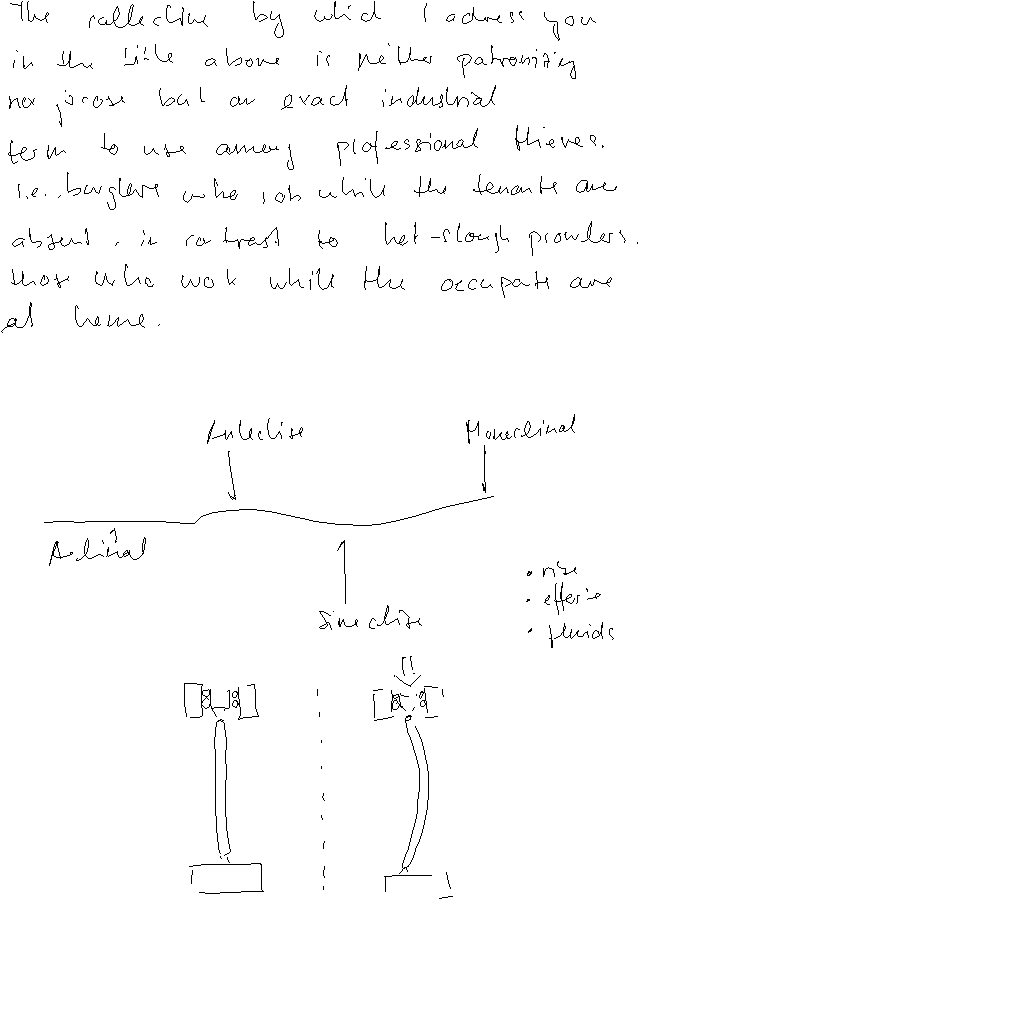 The collective by which I address you
in the title above is neither patronizing
nor jocose but an exact industrial
term to use among professional thieves.
i.e., burglars who job while the tenants are
absent, in contrast to hot-slough prowlers.
those who work while the occupats are
at home.
Anteclise
Monoclinal
Aclinal
Sineclise
• rize
•
• fluids